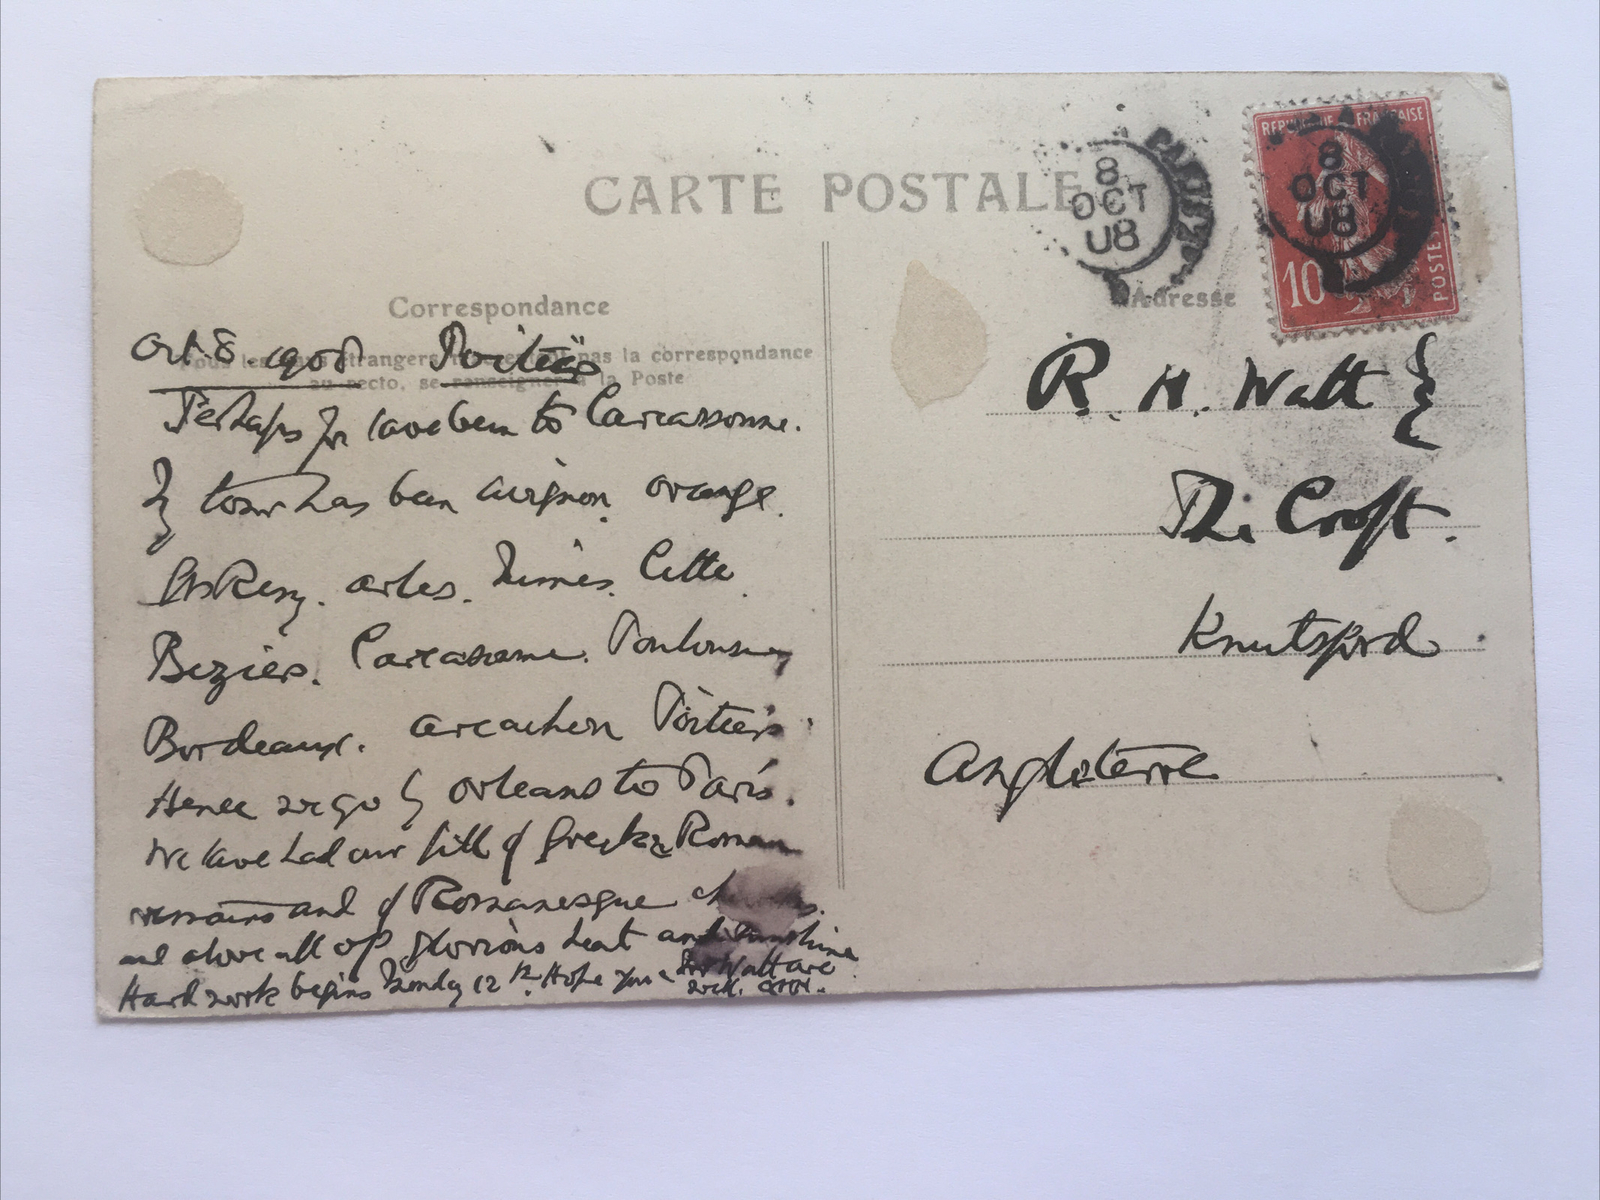 CARTE POSTALE
8
OCT
08
REPUBLIQUE FRANÇAISE
8
OCT
08
10
POSTES
Correspondance
Adresse
Tous les pays étrangers n'acceptent pas la correspondance
au recto, se renseigner à la Poste
Oct. 8 1908 Poitiers
Perhaps you have been to Carcassonne.
My tour has been Avignon. Orange.
St Remy. Arles. Nimes. Cette.
Beziers. Carcassonne. Toulouse
Bordeaux. Arcachon Poitiers
Hence we go by Orleans to Paris.
We have had our fill of Greek & Roman
remains and of Romanesque churches.
and above all of glorious heat and sunshine
Hard work begins Monday 12th. Hope you & Mrs Watt are
well.
R. H. Watt
The Croft.
Knutsford
Angleterre